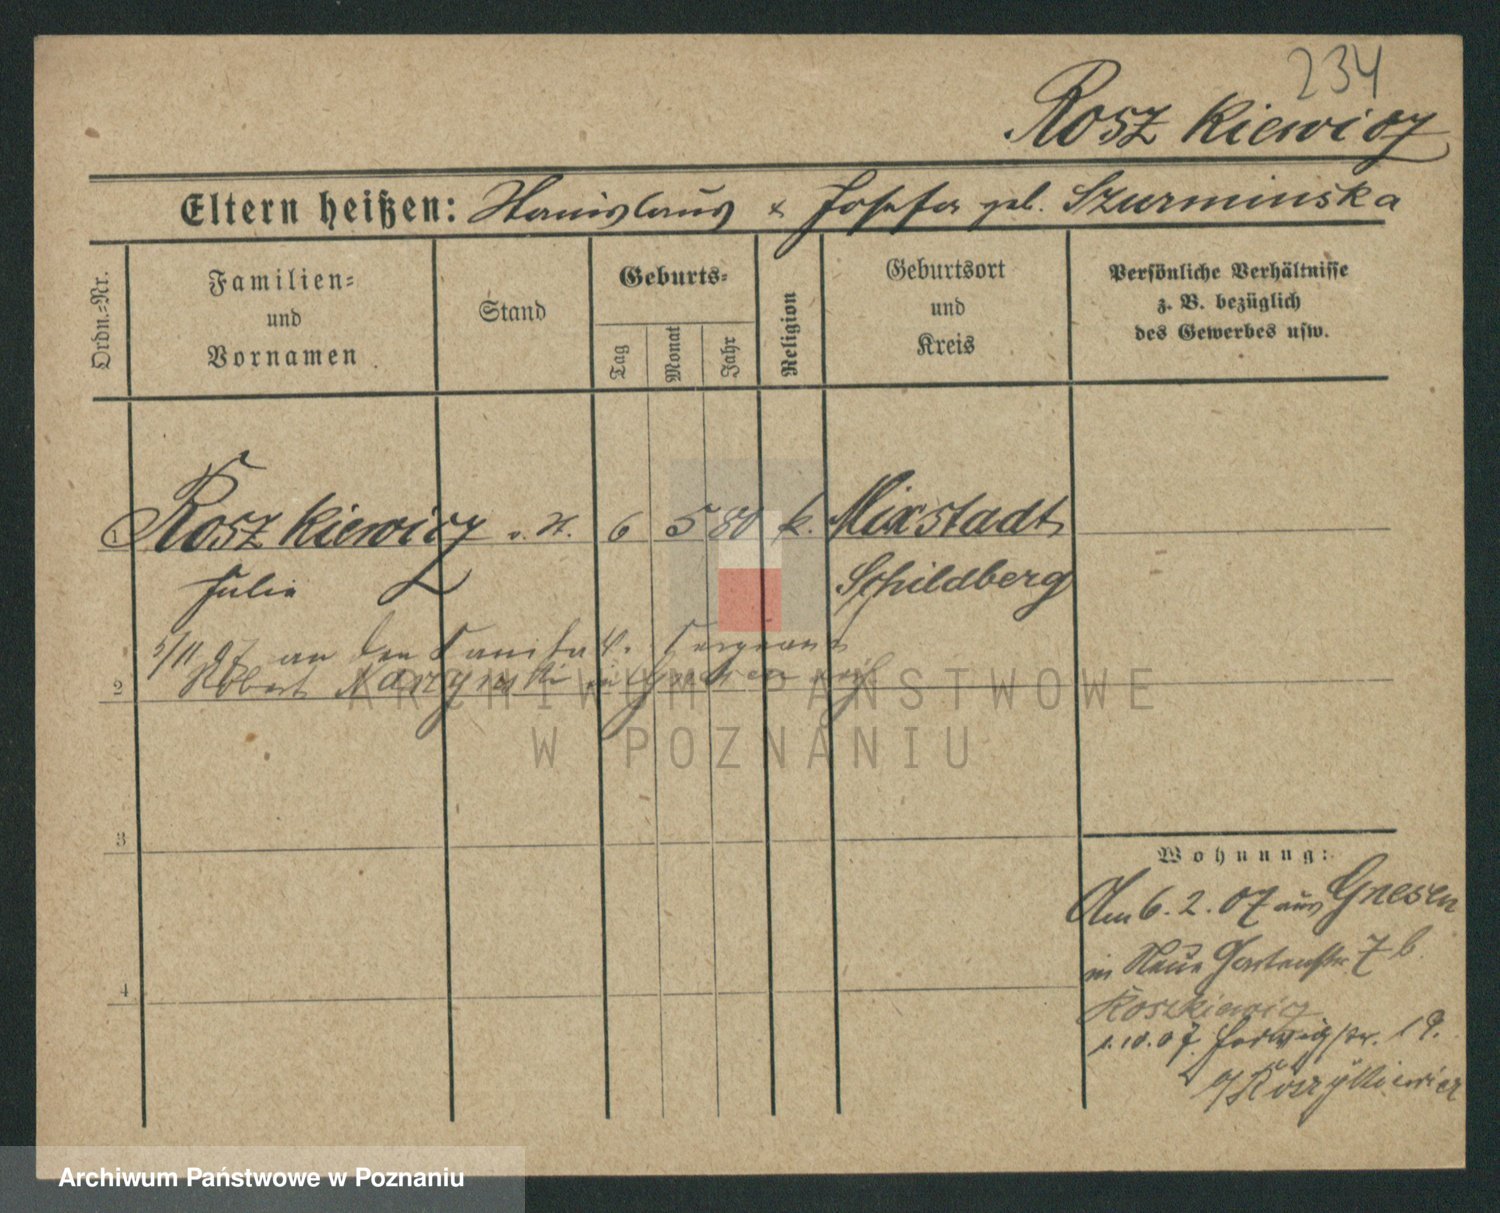 234
Roszkiewicz
Eltern heißen: Stanislaus & Josefa geb. Szurminska
Ordn.-Nr.
Familien-
und
Vornamen
Stand
Geburts-
Tag
Monat
Jahr
Religion
Geburtsort
und
Kreis
Persönliche Verhältnisse
z. B. bezüglich
des Gewerbes usw.
1 Roszkiewicz o. St. 6 5 80 k. Mixstadt
Julie Schildberg
5/11 07 an den Sanitäts. Sergeant
2 Robert in Gnesen
ARCHIWUM PAŃSTWOWE
W POZNANIU
3
Wohnung:
Am 6. 2. 07 aus Gnesen
in Neue Gartenstr. 7 b
4
Roszkiewicz
1.10.07. Hedwigstr. 19.
Archiwum Państwowe w Poznaniu